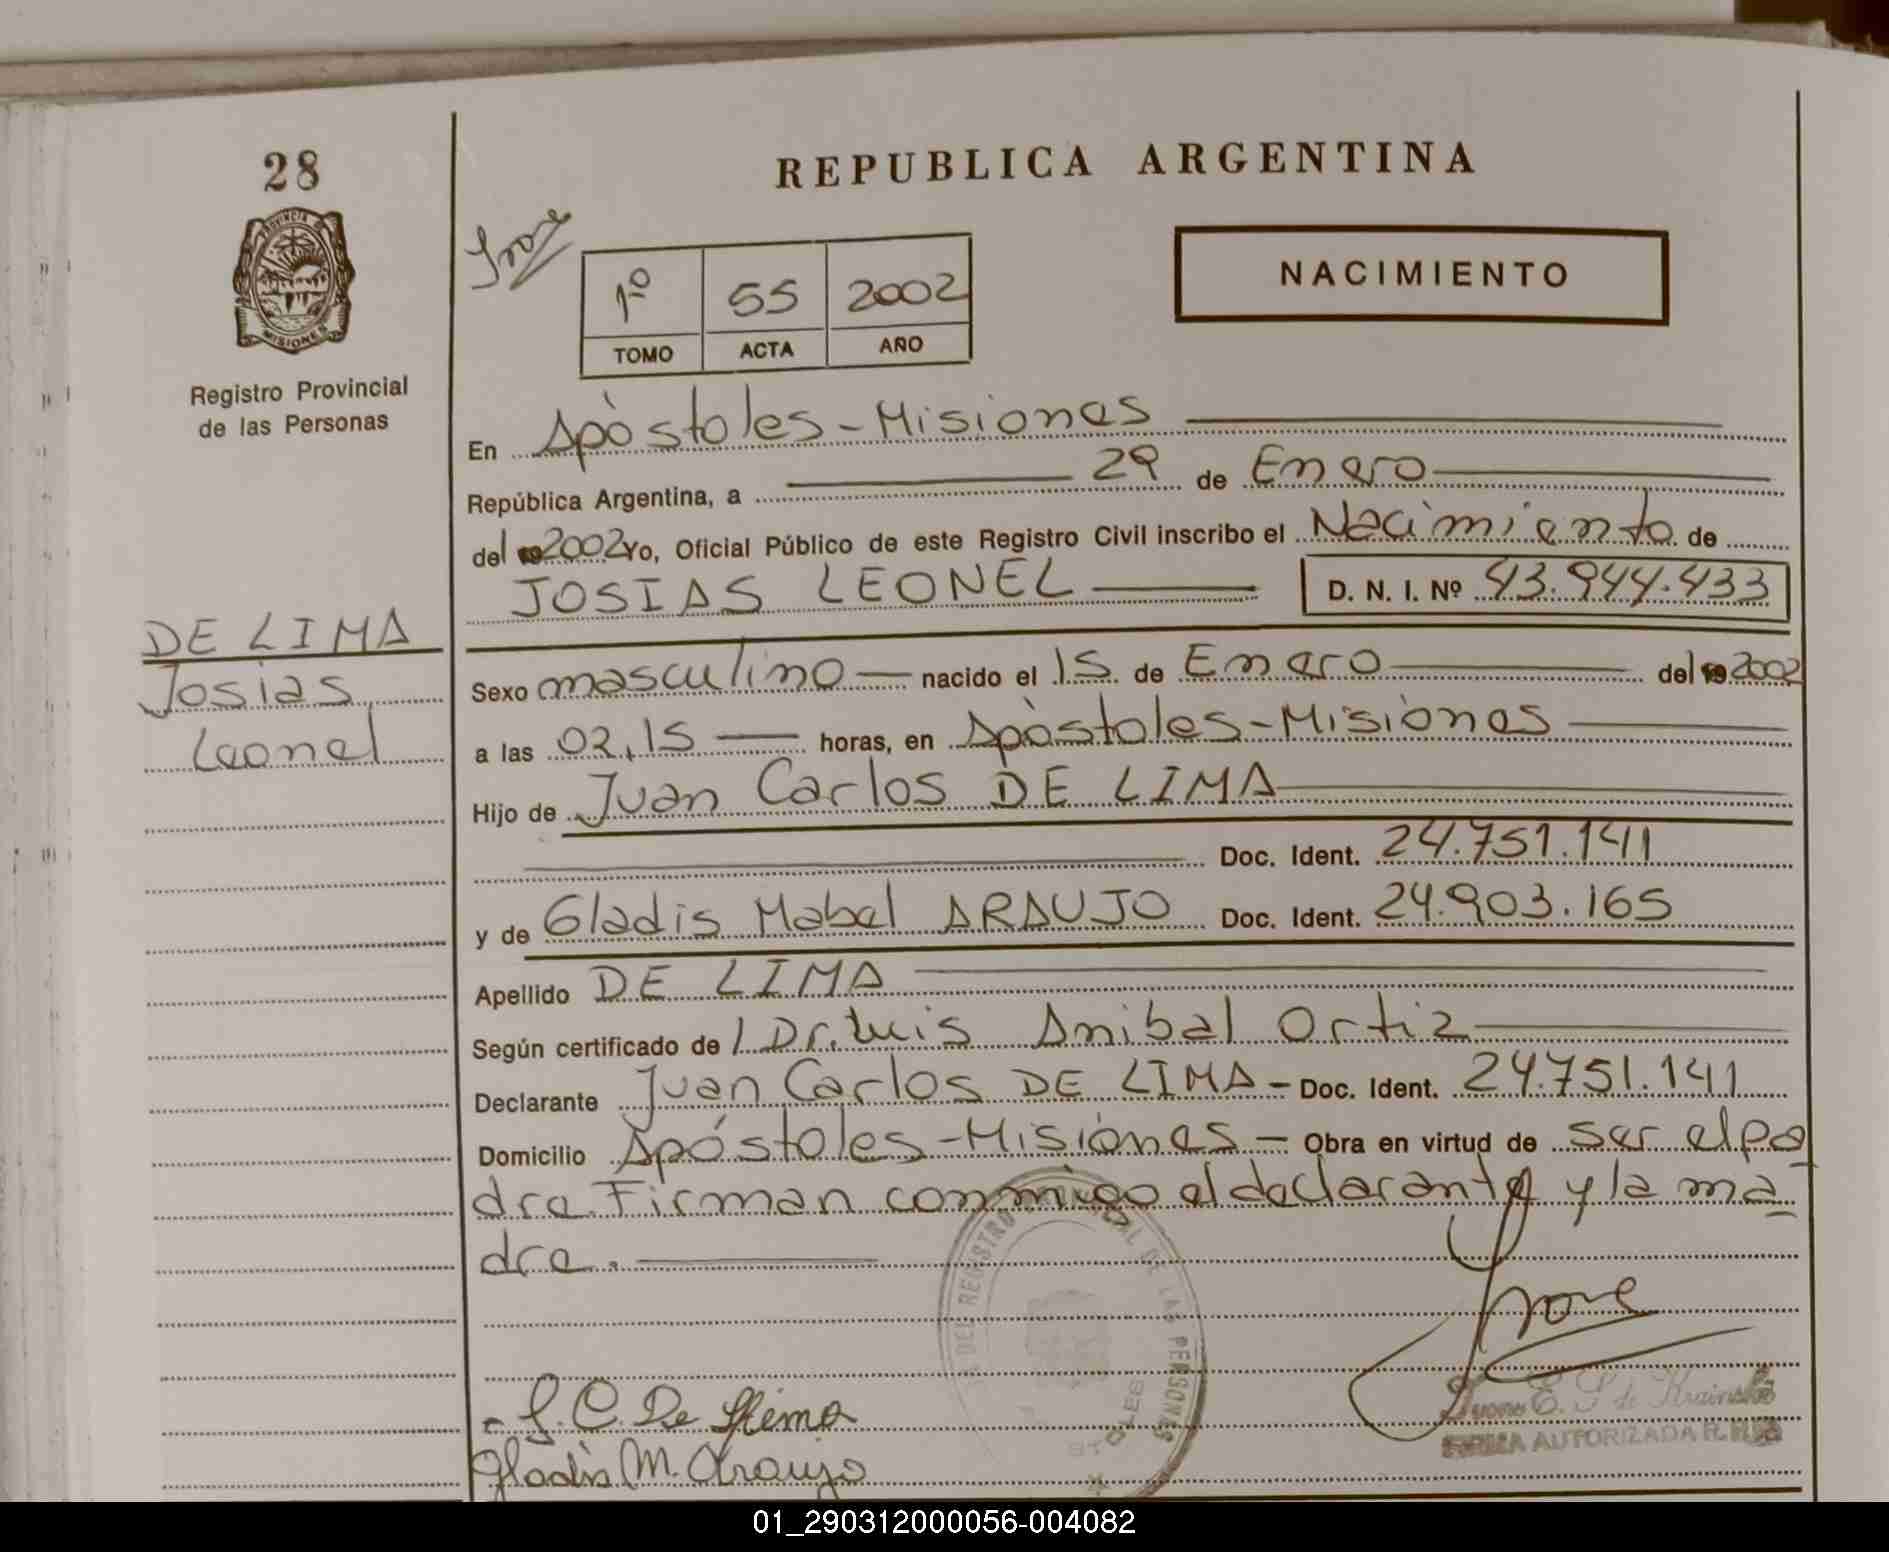 28
REPUBLICA ARGENTINA
PROVINCIA
MISIONES
Registro Provincial
de las Personas
1º 55 2002
TOMO ACTA AÑO
NACIMIENTO
En Apóstoles-Misiones
República Argentina, a 29 de Enero
del 2002 Yo, Oficial Público de este Registro Civil inscribo el Nacimiento de
JOSIAS LEONEL D. N. I. Nº 43.944.433
DE LIMA
Josias
Leonel
Sexo masculino nacido el 15 de Enero del 2002
a las 02,15 horas, en Apóstoles-Misiones
Hijo de Juan Carlos DE LIMA
Doc. Ident. 24.751.141
y de Gladis Mabel ARAUJO Doc. Ident. 24.903.165
Apellido DE LIMA
Según certificado de l Dr. Luis Anibal Ortiz
Declarante Juan Carlos DE LIMA - Doc. Ident. 24.751.141
Domicilio Apóstoles-Misiones - Obra en virtud de ser el pa
dre. Firman conmigo el declarante y la ma-
dre.
DEL REGISTRO DE LAS PERSONAS
J. C. De Lima
Gladis M. Araujo
FIRMA AUTORIZADA
01_290312000056-004082